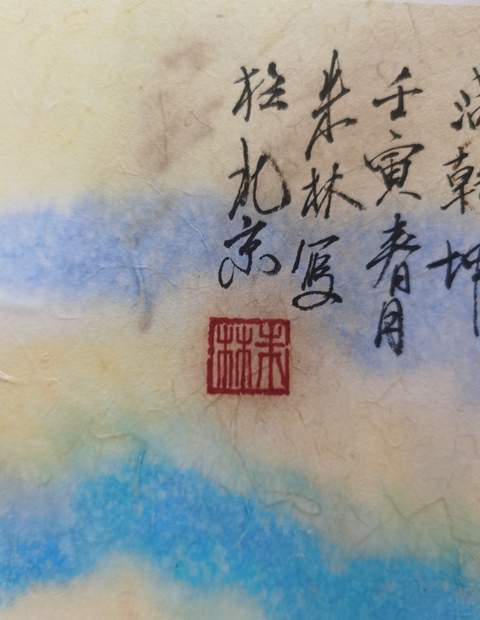 乾坤
壬寅春月
朱林写
於北京
朱林